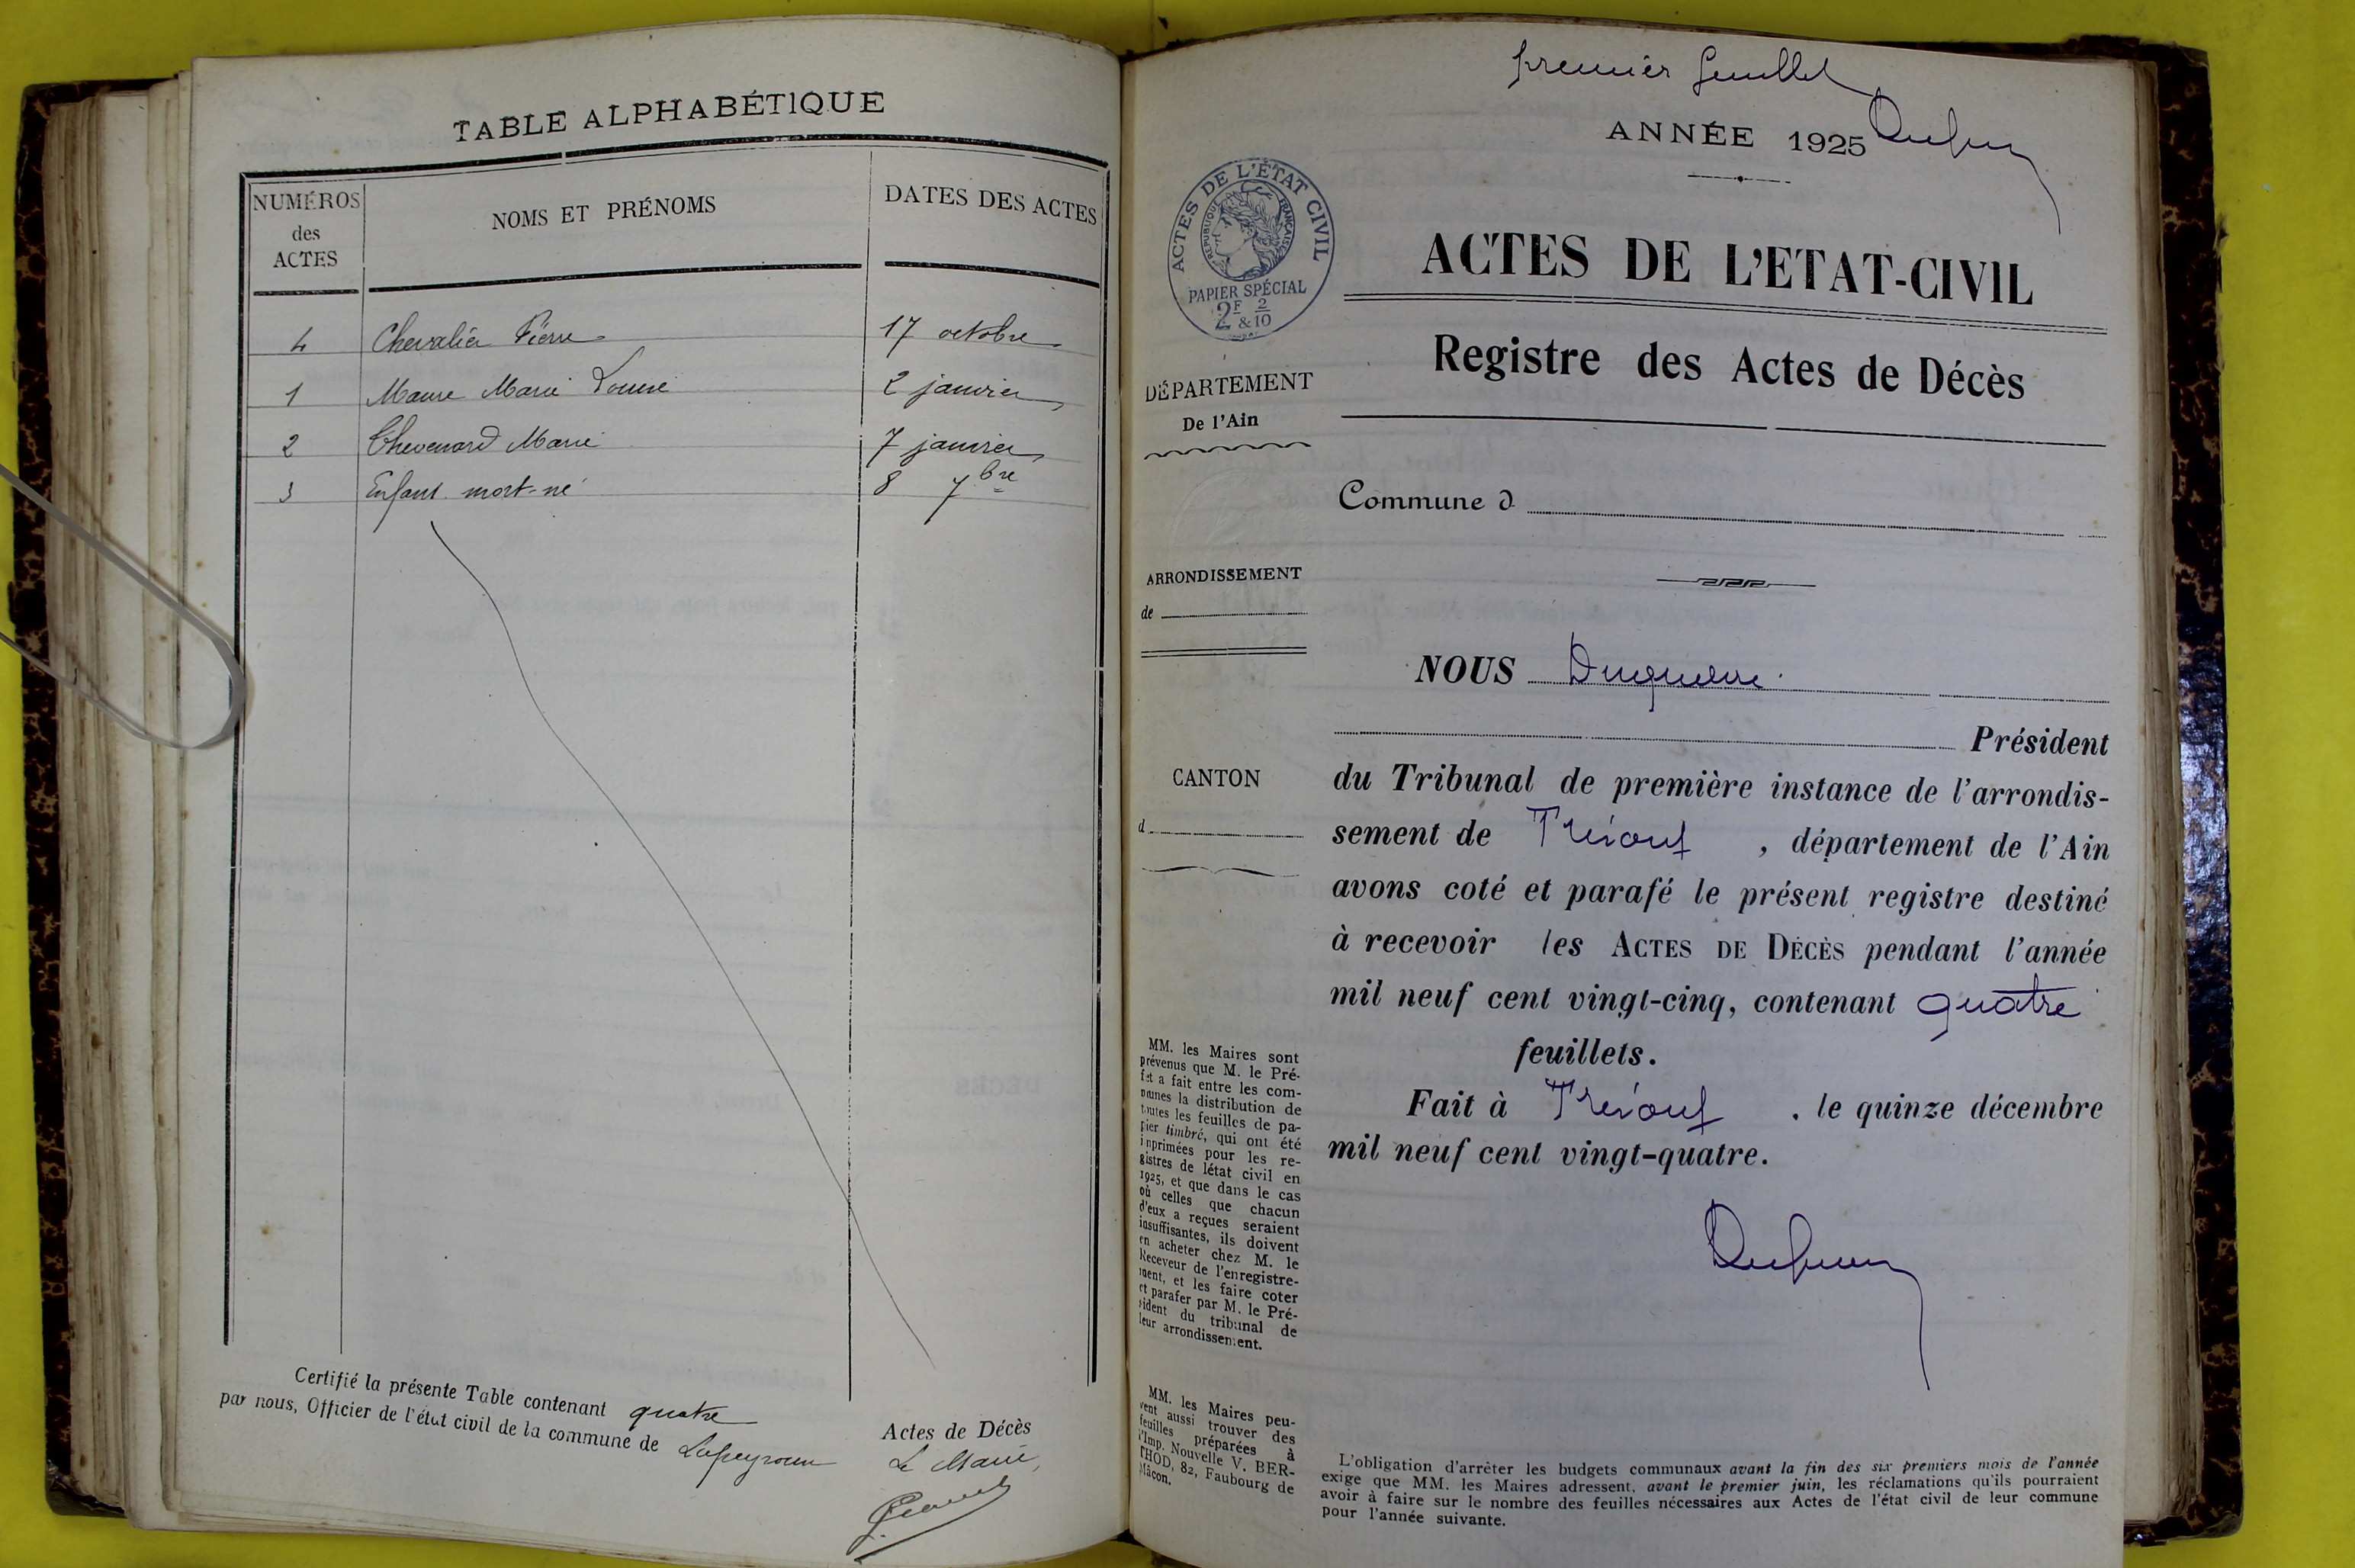 TABLE ALPHABÉTIQUE
NUMÉROS
des
ACTES
NOMS ET PRÉNOMS
DATES DES ACTES
4 Chevalier Pierre 17 octobre
1 Marie Louise 2 janvier
2 Chevenard Marie 7 janvier
3 Enfant mort-né 8 7bre
Certifié la présente Table contenant quatre
Actes de Décès
par nous, Officier de l'état civil de la commune de Lapeyrouse
Le Maire,
premier feuillet
ANNÉE 1925
ACTES DE L'ÉTAT CIVIL
RÉPUBLIQUE FRANÇAISE
PAPIER SPÉCIAL
2F & 2/10
ACTES DE L'ETAT-CIVIL
Registre des Actes de Décès
DÉPARTEMENT
De l'Ain
Commune d
ARRONDISSEMENT
de
NOUS
Président
CANTON
d
du Tribunal de première instance de l'arrondis-
sement de Trévoux , département de l'Ain
avons coté et parafé le présent registre destiné
à recevoir les ACTES DE DÉCÈS pendant l'année
mil neuf cent vingt-cinq, contenant quatre
feuillets.
Fait à Trévoux , le quinze décembre
mil neuf cent vingt-quatre.
MM. les Maires sont
prévenus que M. le Pré-
fet a fait entre les com-
munes la distribution de
toutes les feuilles de pa-
pier timbré, qui ont été
imprimées pour les re-
gistres de létat civil en
1925, et que dans le cas
où celles que chacun
d'eux a reçues seraient
insuffisantes, ils doivent
en acheter chez M. le
Receveur de l'enregistre-
ment, et les faire coter
et parafer par M. le Pré-
sident du tribunal de
leur arrondissement.
MM. les Maires peu-
vent aussi trouver des
feuilles préparées à
l'Imp. Nouvelle V. BER-
THOD, 82, Faubourg de
Mâcon.
L'obligation d'arrêter les budgets communaux avant la fin des six premiers mois de l'année
exige que MM. les Maires adressent, avant le premier juin, les réclamations qu'ils pourraient
avoir à faire sur le nombre des feuilles nécessaires aux Actes de l'état civil de leur commune
pour l'année suivante.